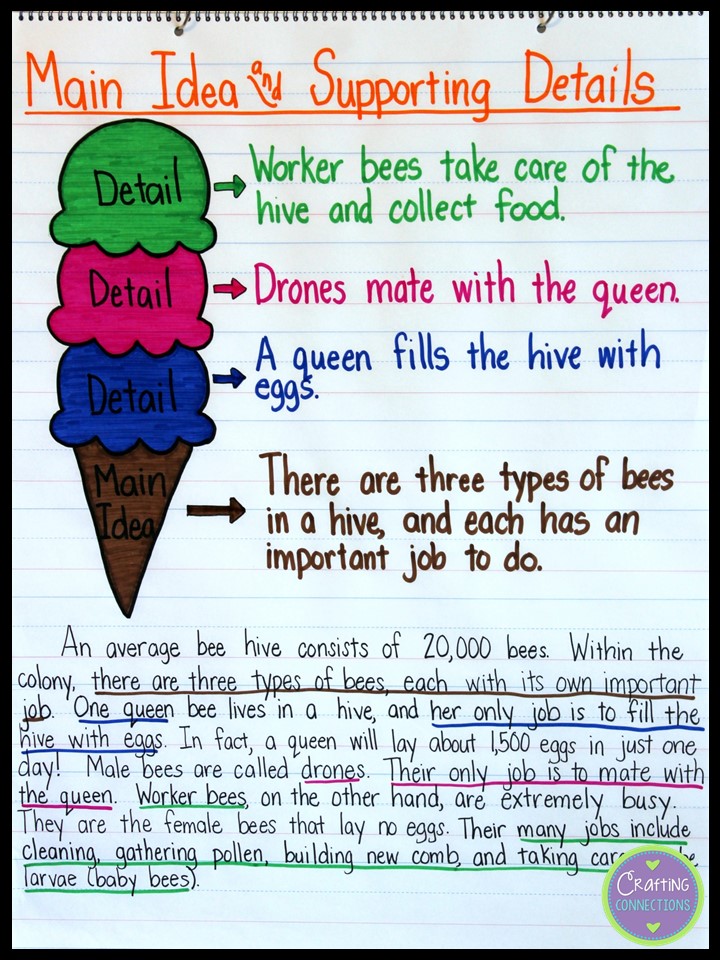 Main Idea and Supporting Details
Detail
Worker bees take care of the
hive and collect food.
Detail
Drones mate with the queen.
Detail
A queen fills the hive with
eggs.
Main
Idea
There are three types of bees
in a hive, and each has an
important job to do.
An average bee hive consists of 20,000 bees. Within the
colony, there are three types of bees, each with its own important
job. One queen bee lives in a hive, and her only job is to fill the
hive with eggs. In fact, a queen will lay about 1,500 eggs in just one
day! Male bees are called drones. Their only job is to mate with
the queen. Worker bees, on the other hand, are extremely busy.
They are the female bees that lay no eggs. Their many jobs include
cleaning, gathering pollen, building new comb, and taking
larvae (baby bees).
Crafting
CONNECTIONS